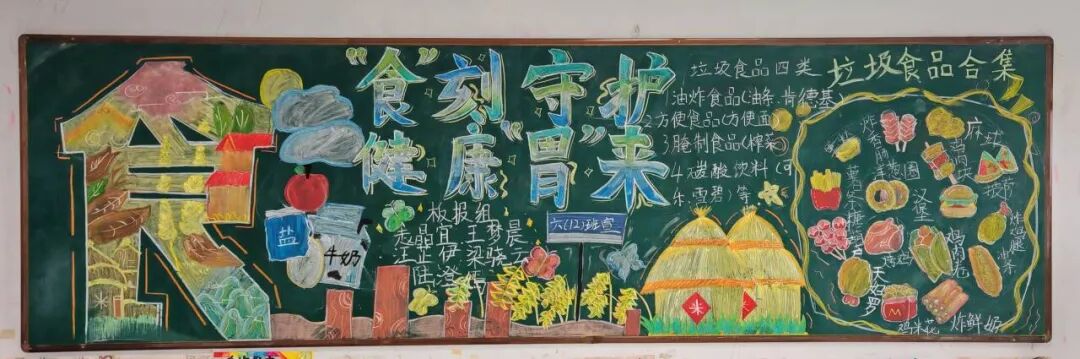 "食"刻守护
健康"胃"来
盐
牛奶
板报组
六(12)班宣
米
垃圾食品四类
1油炸食品(油条、肯德基)
2方便食品(方便面)
3腌制食品(榨菜)
4.碳酸饮料(可
乐.雪碧)等
垃圾食品合集
炸香肠
麻球
鸡肉块
洋葱圈
薯条
汉堡
披萨
糖葫芦
烤鸡
鸡肉卷
炸鸡腿
天妇罗
鸡米花
炸鲜奶